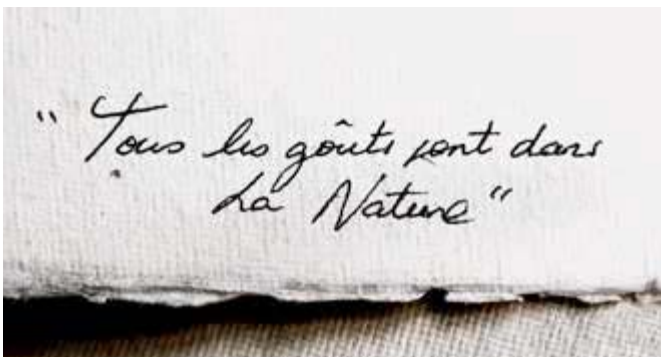 "Tous les goûts sont dans
La Nature"